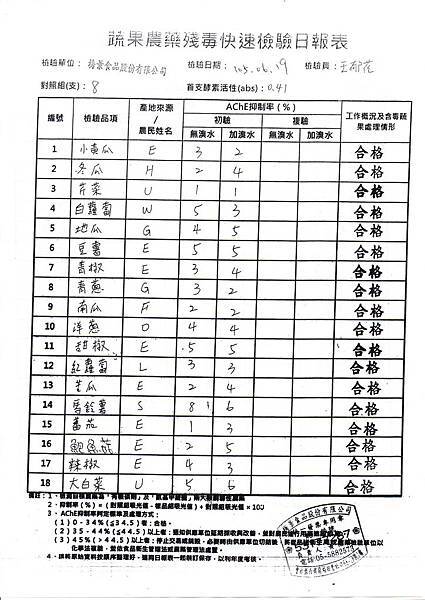 蔬果農藥殘毒快速檢驗日報表
檢驗單位： 食品股份有限公司 檢驗日期： 105.06.19 檢驗員：王郁茹
對照組(支)： 8 首支酵素活性(abs)：0.41
編號 檢驗品項 產地來源/農民姓名 AChE抑制率(%) 工作概況及含毒蔬果處理情形
初驗 複驗
無溴水 加溴水 無溴水 加溴水
1 小黃瓜 E 3 2 合格
2 冬瓜 H 2 4 合格
3 芹菜 U 1 1 合格
4 白蘿蔔 W 5 3 合格
5 地瓜 G 4 5 合格
6 豆薯 E 5 5 合格
7 青椒 E 3 4 合格
8 青蔥 G 3 2 合格
9 南瓜 F 2 2 合格
10 洋蔥 O 4 4 合格
11 甜椒 E 5 5 合格
12 紅蘿蔔 L 3 3 合格
13 苦瓜 E 2 4 合格
14 馬鈴薯 S 8 6 合格
15 蕃茄 E 1 3 合格
16 鮑魚菇 E 2 5 合格
17 辣椒 E 4 3 合格
18 大白菜 U 5 6 合格
備註：1、
2、抑制率(%)=(對照組吸光值-樣品組吸光值)÷對照組吸光值×100
3、AChE抑制率判定標準及處理方式：
(1)0-34%(≦34.5)者：合格。
(2)35-44%(≦44.5)以上者：
(3)45%(>44.5)以上者：